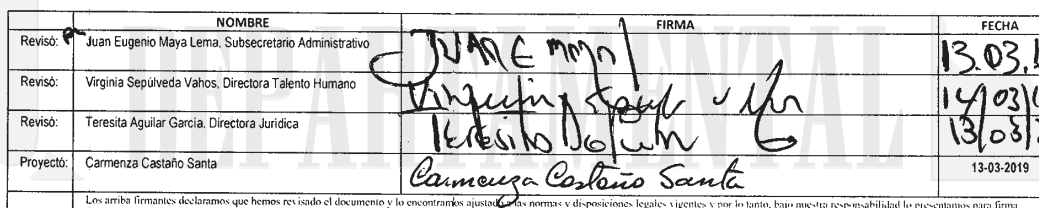 NOMBRE FIRMA FECHA
Revisó: Juan Eugenio Maya Lema, Subsecretario Administrativo JUAN E MAYA 13.03.
Revisó: Virginia Sepúlveda Vahos, Directora Talento Humano Virginia 14/03/
Revisó: Teresita Aguilar García. Directora Jurídica Teresita 13/03/
Proyectó: Carmenza Castaño Santa Carmenza Castaño Santa 13-03-2019
Los arriba firmantes declaramos que hemos revisado el documento y lo encontramos ajustado a las normas y disposiciones legales vigentes y por lo tanto, bajo nuestra responsabilidad lo presentamos para firma
DEPARTAMENTAL